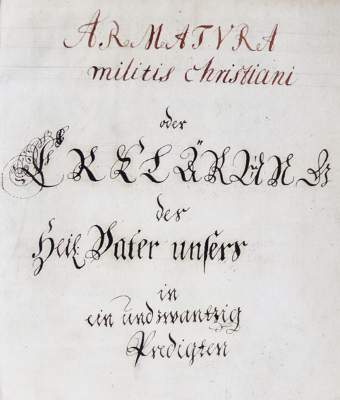 ARMATVRA
militis christiani
oder
ERKLÄRUNG
des
Heil Vater unsers
in
ein und zwantzig
Predigten